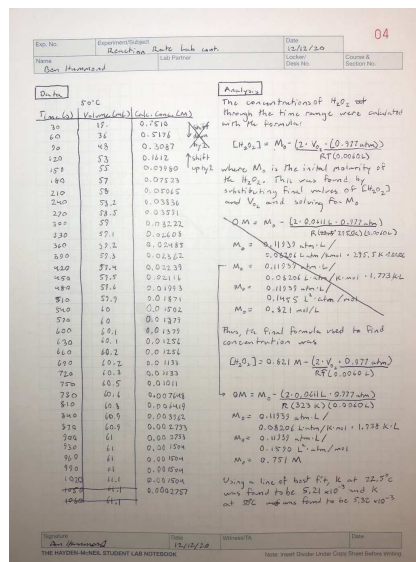 04
Exp. No.
Experiment/Subject
Reaction Rate Lab cont.
Date
12/12/20
Name
Ben Hammond
Lab Partner
Locker/
Desk No.
Course &
Section No.
Data
50°C
Time (s) Volume (mL) Calc. Conc. (M)
30 0.7510
60 36 0.5176
90 48 0.3087
120 53 0.1612
150 55 0.09980
180 57 0.07523
210 58 0.05065
240 58.2 0.03836
270 58.5 0.03591
300 0.03222
330 59.1 0.02608
360 59.2 0.02485
390 59.3 0.02362
420 59.4 0.02239
450 59.5 0.02116
480 59.6 0.01993
510 59.9 0.01871
540 60 0.01502
570 60 0.01379
600 60.1 0.01379
630 60.1 0.01256
660 60.2 0.01256
690 60.2 0.01133
720 60.3 0.01133
750 60.5 0.01011
780 60.6 0.007648
810 60.8 0.006419
840 60.9 0.003962
870 60.9 0.002733
900 61 0.002733
930 61 0.001504
960 61 0.001504
990 61 0.001504
1020 61.1 0.001504
1050 61.1 0.0002757
1080 61.1
shift
by 2
↑ shift
up by 2
Analysis
The concentrations of H₂O₂
through the time range were calculated
with the formula:
[H₂O₂] = M₀ - (2 · V₀₂ · 0.977 atm)
RT (0.0060L)
where M₀ is the initial molarity of
the H₂O₂. This was found by
substituting final values of [H₂O₂]
and V₀₂ and solving for M₀
0 M = M₀ - (2 · 0.0611L · 0.977 atm)
M₀ = 0.11939 atm·L
0.08206 L·atm/k·mol · 295.5 K
M₀ = 0.11939 atm·L/
0.08206 L·atm/K·mol · 1.773 K·L
M₀ = 0.11939 atm·L/
0.1455 L²·atm/mol
M₀ = 0.821 mol/L
Thus, the final formula used to find
concentration was
[H₂O₂] = 0.821 M - (2 · V₀₂ · 0.977 atm)
RT (0.0060 L)
0M = M₀ - (2 · 0.0611L · 0.977 atm)
R (323 K) (0.0060 L)
M₀ = 0.11939 atm·L/
0.08206 L·atm/K·mol · 1.938 K·L
M₀ = 0.11939 atm·L/
0.1590 L²·atm/mol
M₀ = 0.751 M
Using a line of best fit, K at 22.5°C
was found to be 5.21 x10⁻³ and K
at 50°C was found to be 5.32 x10⁻³
Signature
Ben Hammond
Date
12/12/20
Witness/TA
Date
THE HAYDEN-McNEIL STUDENT LAB NOTEBOOK
Note: Insert Divider Under Copy Sheet Before Writing